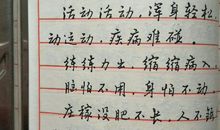 活动活动，浑身轻松
动运动，疾病难碰。
练练力出 缩缩病入
脑怕不用，身怕不动
庄稼没肥不长，人不